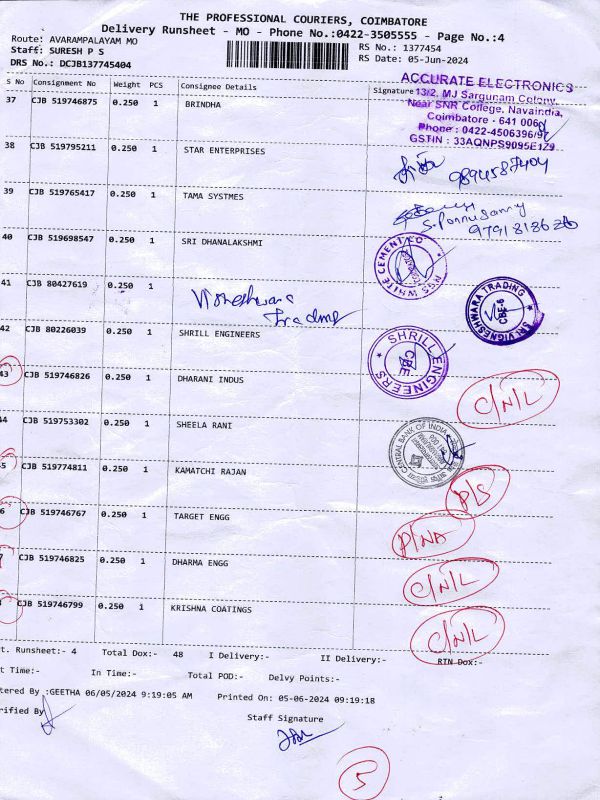 THE PROFESSIONAL COURIERS, COIMBATORE
Delivery Runsheet - MO - Phone No.:0422-3505555 - Page No.:4
Route: AVARAMPALAYAM MO
RS No.: 1377454
Staff: SURESH P S
RS Date: 05-Jun-2024
DRS No.: DCJB137745404
S No Consignment No Weight PCS Consignee Details Signature
ACCURATE ELECTRONICS
13/2, MJ Sargunam Colony,
Near SNR College, Navaindia,
Coimbatore - 641 006
Phone : 0422-4506396/97
GSTIN : 33AQNPS9095E1Z9
37 CJB 519746875 0.250 1 BRINDHA
38 CJB 519795211 0.250 1 STAR ENTERPRISES
9894587404
39 CJB 519765417 0.250 1 TAMA SYSTMES
S. Ponnusamy
40 CJB 519698547 0.250 1 SRI DHANALAKSHMI
WHITE CEMENT CO
41 CJB 80427619 0.250 1
Vigneshwara
Trading
SRI VIGNESHWARA TRADING
CBE-6
42 CJB 80226039 0.250 1 SHRILL ENGINEERS
SHRILL ENGINEERS
CBE
43 CJB 519746826 0.250 1 DHARANI INDUS
C/N/L
44 CJB 519753302 0.250 1 SHEELA RANI
CENTRAL BANK OF INDIA
45 CJB 519774811 0.250 1 KAMATCHI RAJAN
P/S
6 CJB 519746767 0.250 1 TARGET ENGG
P/NA
7 CJB 519746825 0.250 1 DHARMA ENGG
C/N/L
CJB 519746799 0.250 1 KRISHNA COATINGS
C/N/L
t. Runsheet:- 4 Total Dox:- 48 I Delivery:- II Delivery:- RTN Dox:-
t Time:- In Time:- Total POD:- Delvy Points:-
tered By :GEETHA 06/05/2024 9:19:05 AM Printed On: 05-06-2024 09:19:18
rified By
Staff Signature
5